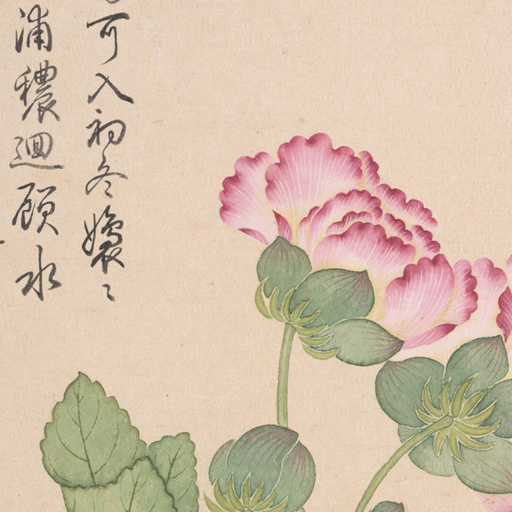 可入初冬嬝〻
浦穠迴顧水